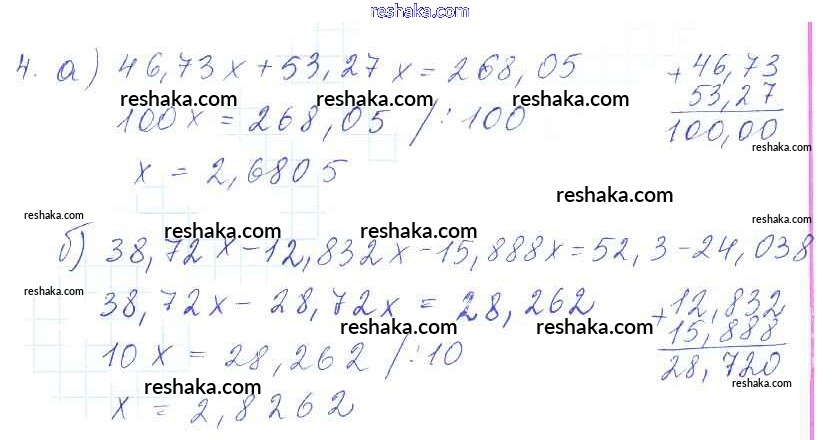 reshaka.com
4. а) 46,73x + 53,27x = 268,05 + 46,73
reshaka.com reshaka.com reshaka.com 53,27
100x = 268,05 /:100 100,00
reshaka.com
x = 2,6805
reshaka.com
reshaka.com reshaka.com
reshaka.com reshaka.com
б) 38,72x - 12,832x - 15,888x = 52,3 - 24,038
reshaka.com reshaka.com
38,72x - 28,72x = 28,262 + 12,832
reshaka.com reshaka.com 15,888
10x = 28,262 /:10 28,720
reshaka.com reshaka.com reshaka.com
x = 2,8262